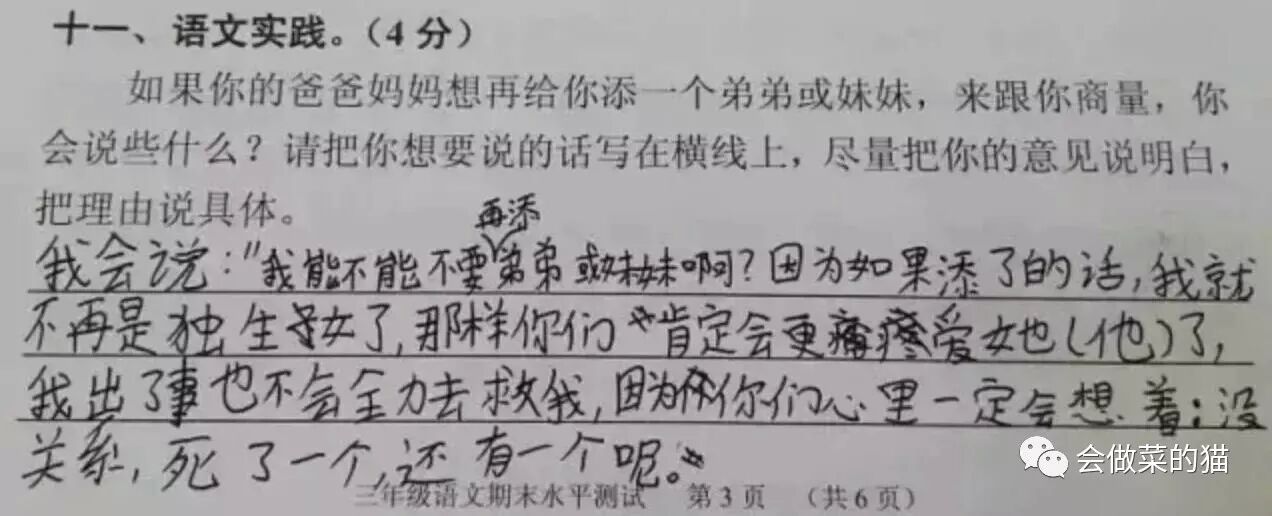 十一、语文实践。(4分)
如果你的爸爸妈妈想再给你添一个弟弟或妹妹，来跟你商量，你
会说些什么？请把你想要说的话写在横线上，尽量把你的意见说明白，
把理由说具体。
再添
我会说："我能不能不要弟弟或妹妹啊?因为如果添了的话,我就
不再是独生子女了,那样你们肯定会更疼爱她(他)了,
我出了事也不会全力去救我,因为你们心里一定会想着:没
关系,死了一个,还有一个呢。"
三年级语文期末水平测试 第3页 (共6页)
会做菜的猫